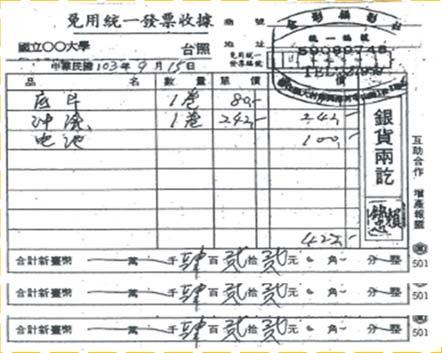 免用統一發票收據
商號
國立〇〇大學 台照
地址
統一編號
59099748
TEL
免用統一發票編號
中華民國103年9月15日
品名 數量 單價 價
底片 1卷 80.-
沖洗 1卷 242.- 242.-
电池 100.-
銀貨兩訖
互助合作 增產報國
422.-
合計新臺幣 萬 千肆百貳拾貳元 角 分 整
501
合計新臺幣 萬 千肆百貳拾貳元 角 分 整
501
合計新臺幣 萬 千肆百貳拾貳元 角 分 整
501